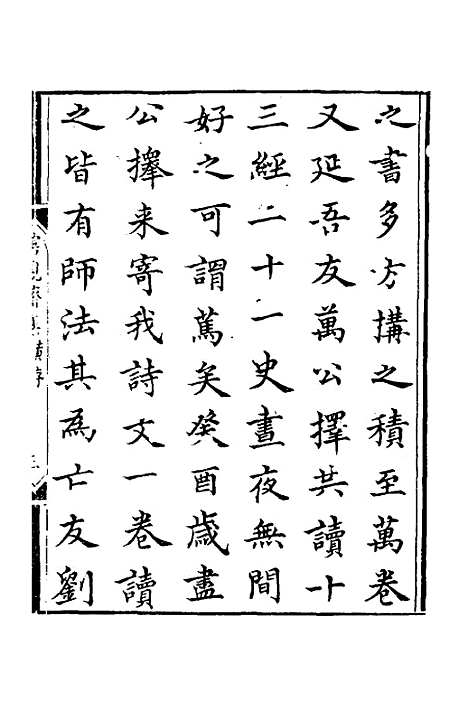 之書多方搆之積至萬卷
又延吾友萬公擇共讀十
三經二十一史晝夜無間
好之可謂篤矣癸酉歲盡
公擇来寄我詩文一卷讀
之皆有師法其為亡友劉